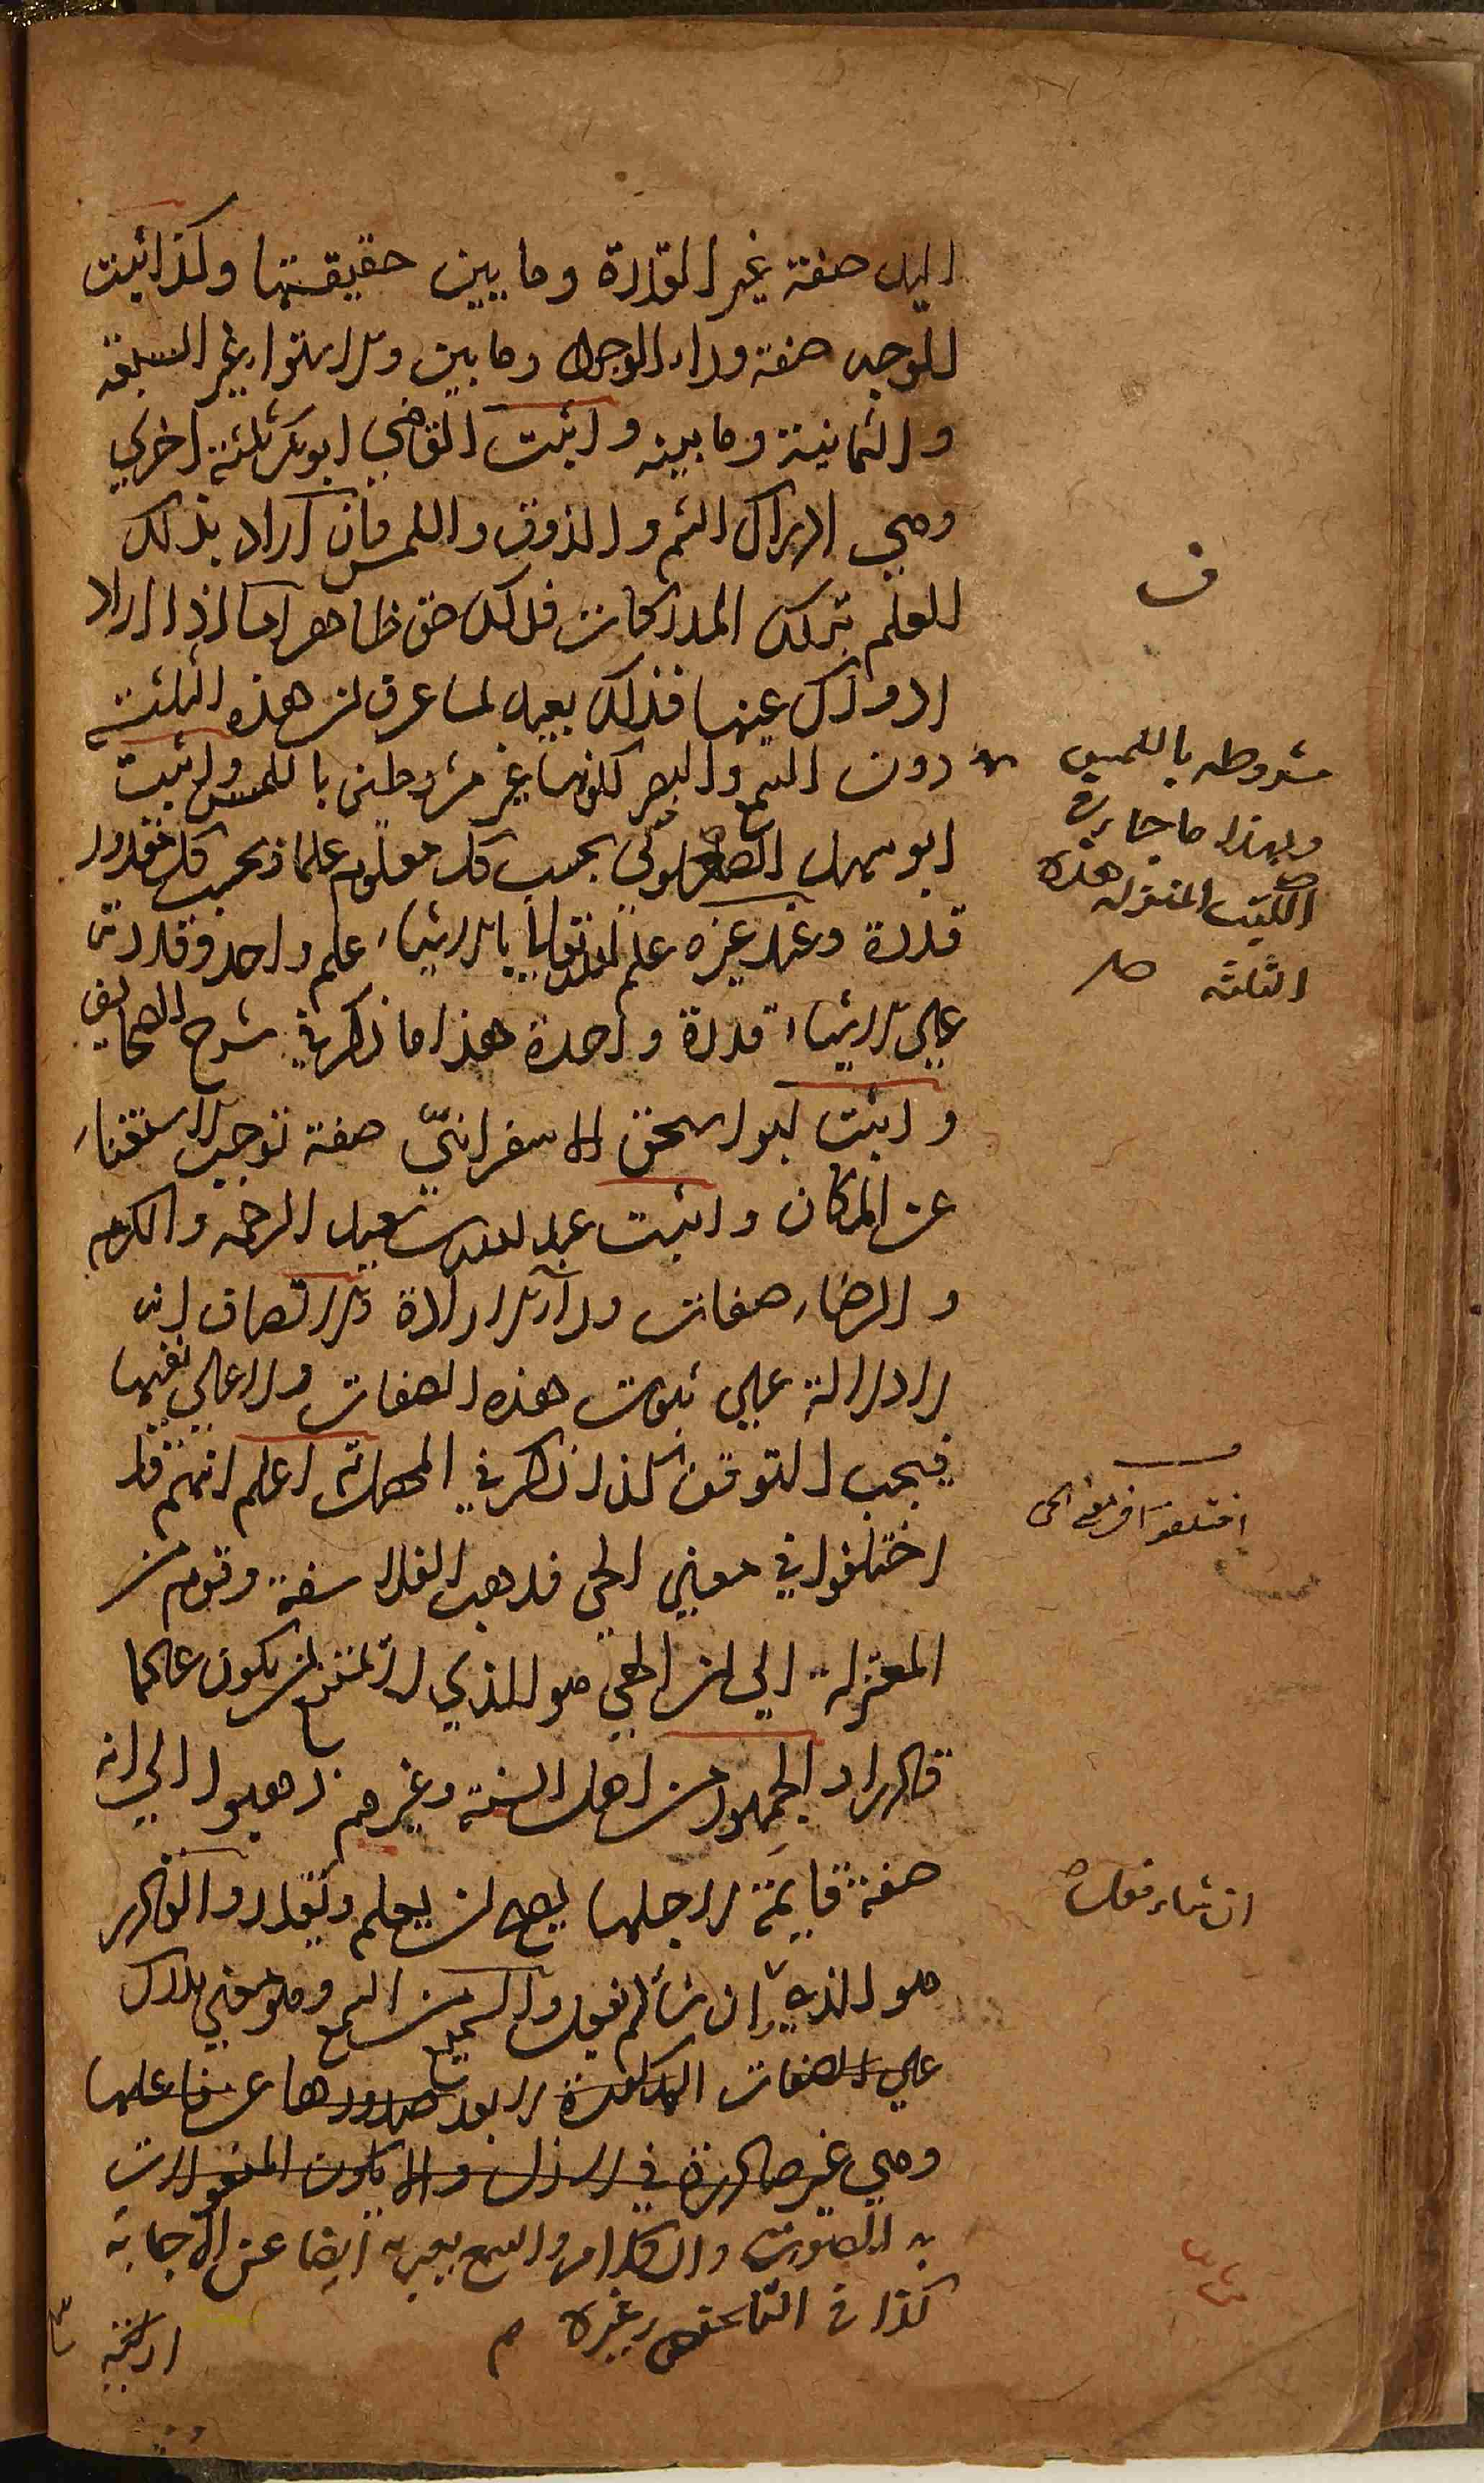 اليد صفة غير القدرة وما يبين حقيقتها وكذا اثبت
للوجه صفة وراء الوجود وما بين والاستواء غير السبعة
والثمانية وما بينه واثبت القاضي ابو بكر ثلثة اخري
وهي ادراك الشم والذوق واللمس فان اراد بذلك
العلم بتلك المدركات فذلك حق ظاهر اما اذا اراد
ادراك عينها فذلك بعيد لما عرف ان هذه الثلثة
دون السمع والبصر لكونها غير مشروطين باللمس واثبت
ابو سهل الصعلوكي بحسب كل معلوم علما وبحسب كل مقدور
قدرة وعند غيره علم الله تعالى بالاشياء علم واحد وقدرته
علي الاشياء قدرة واحدة هذا ما ذكر في شرح الصحايف
واثبت ابو اسحق الاسفرانيّ صفة توجب الاستغناء
عن المكان واثبت عبد الله بن سعيد الرحمة والكرم
والرضاء صفات وراء الارادة والانصاف انه
لا دلالة علي ثبوت هذه الصفات ولا علي نفيها
فيجب التوقف كذا ذكر في المهمات اعلم انهم قد
اختلفوا في معني الحي فذهب الفلاسفة وقوم من
المعتزلة الي ان الحي هو الذي لا يمتنع ان يكون عالما
قادرا والجمهور من اهل السنة وغيرهم ذهبوا الي انه
صفة قايمة لاجلها يصح ان يعلم ويقدر والقادر
هو الذي ان شاء لم يفعل والسميع من السمع وهو معني يدرك
علي الصفات المذكورة لا بعد صدورها عن فاعلها
وهي غير صادرة في الازل والا يكون المفعولات
به الصوت والكلام والسمع يعبر به ايضا عن الاجابة
كذا في وغيره م
ف
مشروطه باللمس
ولهذا ما جاء في
الكتب المنزله هذه
الثلثه صح
اختلفوا في معنى الحى
ان شاء فعل